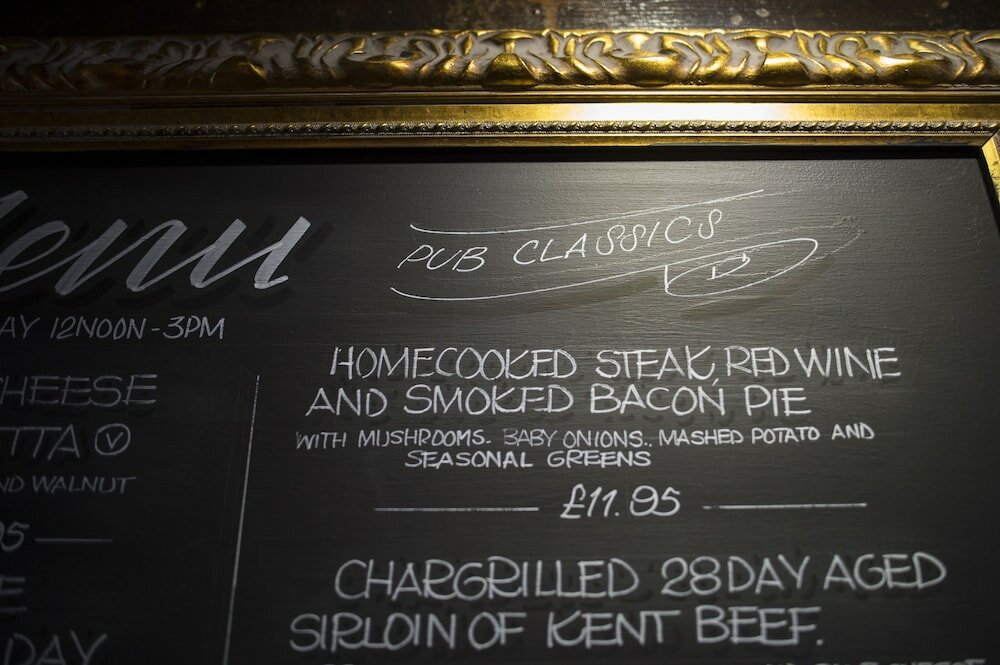 Menu
AY 12NOON-3PM
HEESE
TTA V
ND WALNUT
5
DAY
PUB CLASSICS
HOMECOOKED STEAK, RED WINE
AND SMOKED BACON PIE
WITH MUSHROOMS. BABY ONIONS.. MASHED POTATO AND
SEASONAL GREENS
£11.95
CHARGRILLED 28 DAY AGED
SIRLOIN OF KENT BEEF.